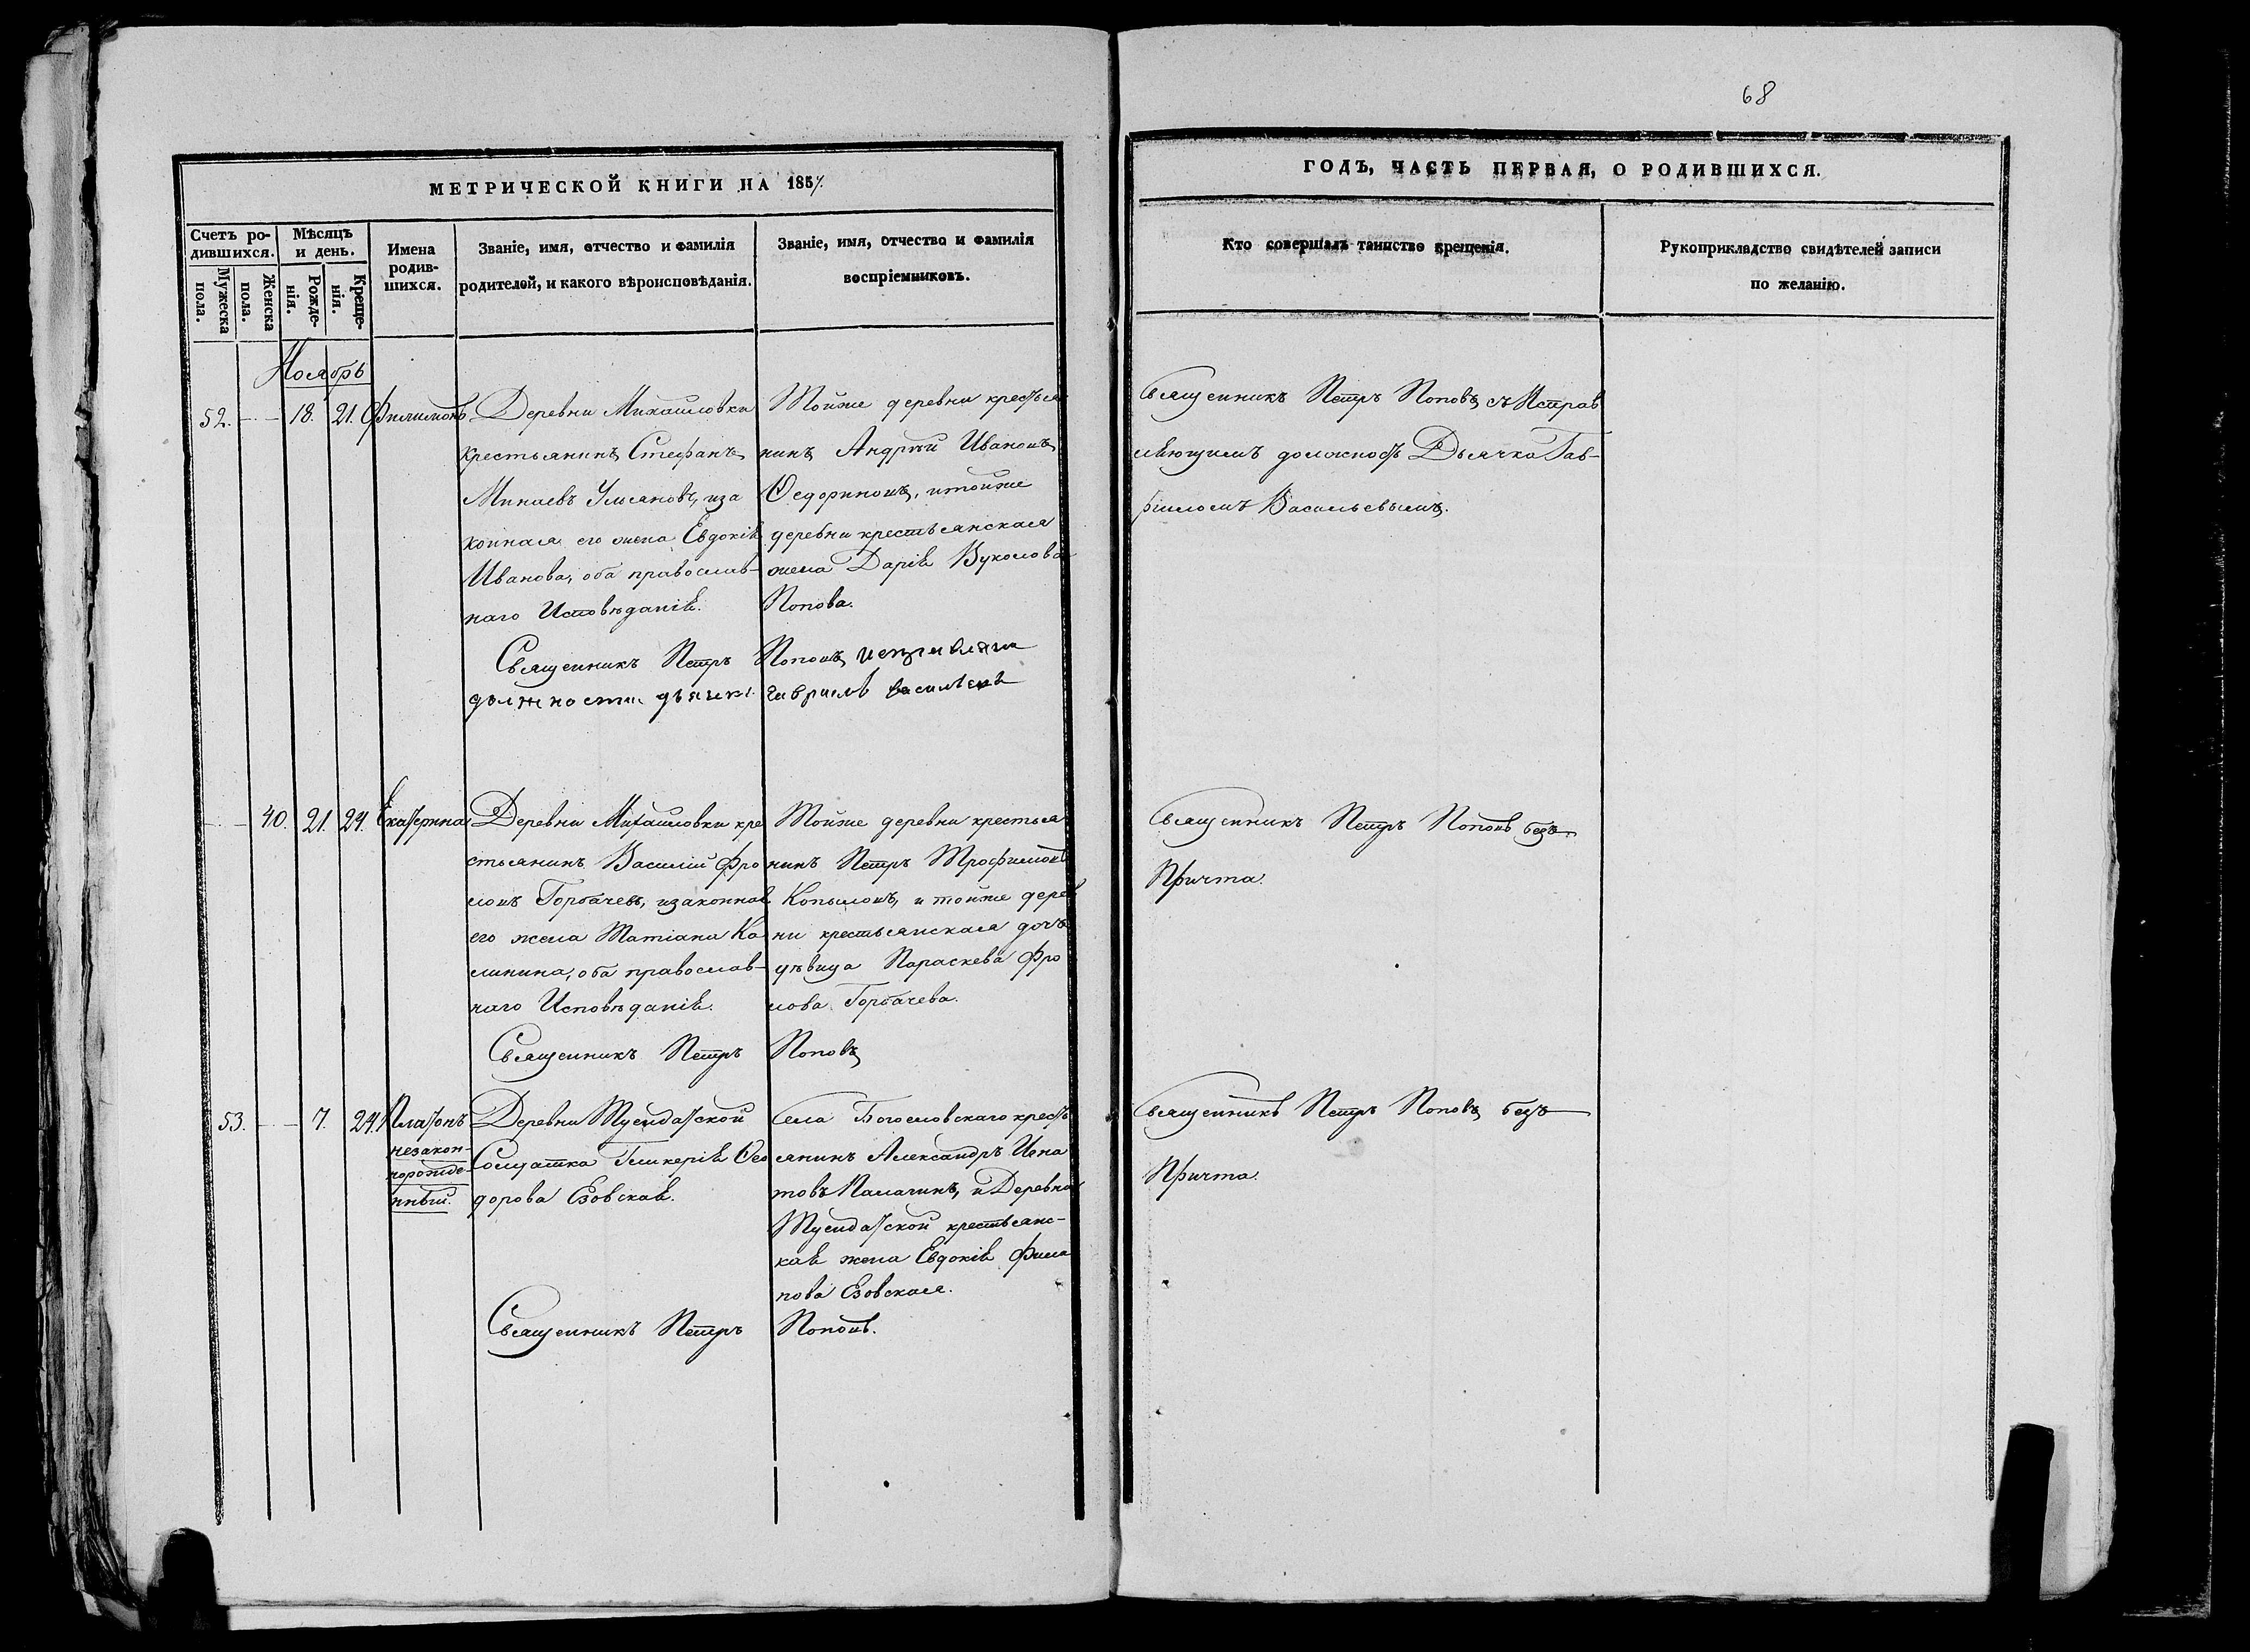 68
МЕТРИЧЕСКОЙ КНИГИ НА 1857.
ГОДЪ, ЧАСТЬ ПЕРВАЯ, О РОДИВШИХСЯ.
Счетъ ро-
дившихся.
Мужеска
пола.
Женска
пола.
Мѣсяцъ
и день.
Рожде-
нія.
Креще-
нія.
Имена
родив-
шихся.
Званіе, имя, отчество и фамилія
родителей, и какого вѣроисповѣданія.
Званіе, имя, отчество и фамилія
воспріемниковъ.
Кто совершалъ таинство крещенія.
Рукоприкладство свидѣтелей записи
по желанію.
Ноябрь
52. 18. 21. Филимонъ
Деревни Михайловки
крестьянинъ Стефанъ
Минаевъ, иза
конная его жена Евдокія
Иванова, оба православ-
наго Исповѣданія.
Тойже деревни крестья
нинъ Андрей Ивановъ
итойже
деревни крестьянская
жена Дарія Вуколова
Попова.
Священникъ Петръ Поповъ, съ Исправ
ляющимъ должность Дьячка Гав-
риломъ Васильевымъ.
Священникъ Петръ Поповъ, исправляю
должности дьячка Гаврилъ Василье
40. 21. 24. Екатерина
Деревни Михайловки кре
стьянинъ Василій Фро
ловъ Горбачевъ, изаконная
его жена Татіана Ка
линина, оба православ-
наго Исповѣданія.
Тойже деревни крестья
нинъ Петръ Трофимовъ
Копыловъ, и тойже дерев
ни крестьянская дочь
дѣвица Параскева Фро
лова Горбачева.
Священникъ Петръ Поповъ безъ
Причта.
Священникъ Петръ Поповъ
53. 7. 24. Платонъ
незакон-
норожде
нный.
Деревни
Солдатка Гликерія Ѳео
дорова Езовская.
Села Богословскаго кресть
янинъ Александръ Игна
товъ Палагинъ, и Деревни
крестьянс-
кая жена Евдокія Фила
това Езовская.
Священникъ Петръ Поповъ безъ
Причта.
Священникъ Петръ Поповъ.